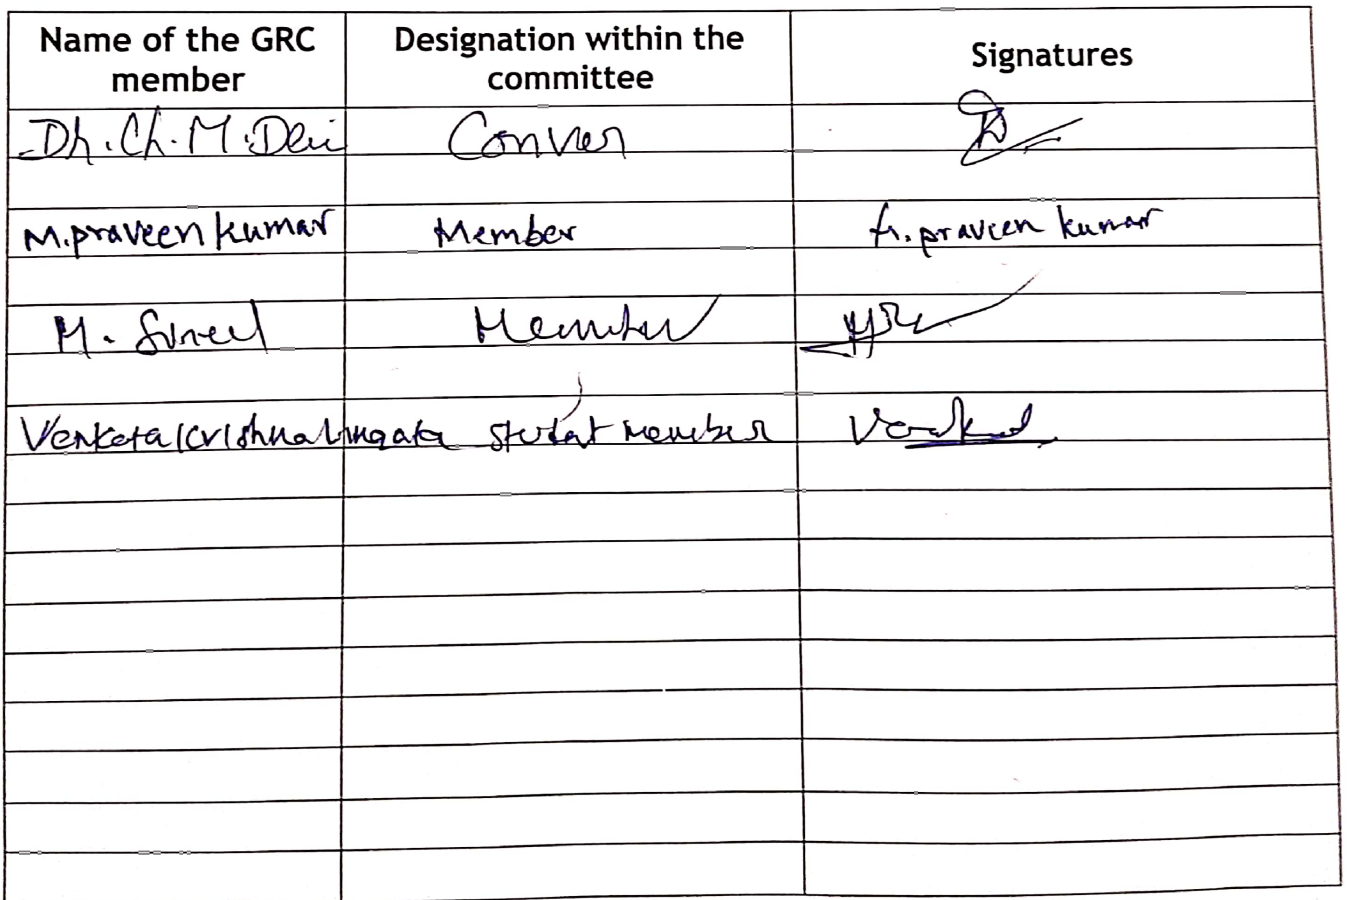 Name of the GRC member
Designation within the committee
Signatures
Dh.Ch.M.Devi Conver
M.praveen kumar Member M.praveen kumar
M. Suneel Member
Venkata Krishna Lingata student member Venkat